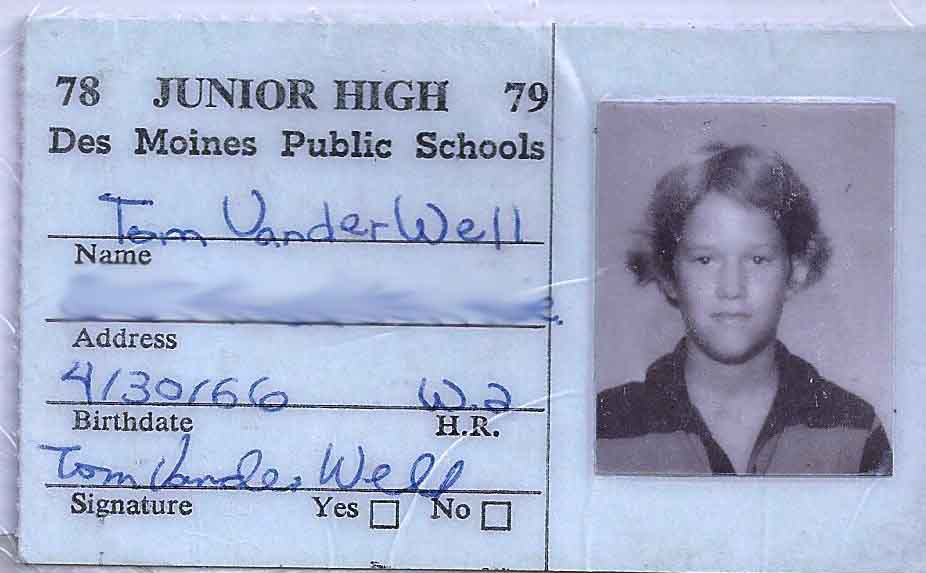 78 JUNIOR HIGH 79
Des Moines Public Schools
Tom VanderWell
Name
Address
4/30/66 W.2
Birthdate H.R.
Tom VanderWell
Signature Yes No